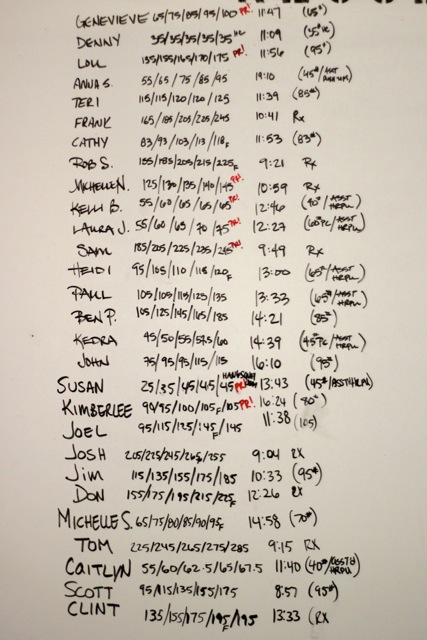 GENEVIEVE 65/75/85/95/100 PR! 11:47 (65#)
DENNY 35/35/35/35/35 11:09
LOU 135/155/165/170/175 PR! 11:56 (95#)
ANNA S. 55/65/75/85/95 (45#/ASST
TERI 115/115/120/120/125 11:39 (85#)
FRANK 165/185/205/225/245 10:41 Rx
CATHY 83/93/103/113/118F 11:53 (83#)
ROB S. 155/185/205/215/225F 9:21 Rx
MICHELLE N. 125/130/135/140/145 PR! 10:59 Rx
KELLI B. 55/60/65/65/65 PR! 12:46 (40#/ASST HRPU)
LAURA J. 55/60/65/70/75 PR! 12:27 (60#PC/ASST HRPU)
SAM 185/205/225/235/245 PR! 9:49 Rx
HEIDI 95/105/110/115/120F 13:00 (65#/ASST HRPU)
PAUL 105/105/115/125/135 13:33 (65#/ASST HRPU)
BEN P. 105/125/145/165/185 14:21 (85#)
KEDRA 45/50/55/57.5/60 14:39 (45#PC/ASST HRPU)
JOHN 75/95/95/115/115 16:10 (95#)
SUSAN 25/35/45/45/45 PR! 13:43 (45#/ASST HRPU)
KIMBERLEE 90/95/100/105F/105 PR! 16:24 (80#)
JOEL 95/115/125/145F/145 11:38 (105)
JOSH 205/225/245/265/255 9:04 RX
JIM 115/135/155/175/185 10:33 (95#)
DON 155/175/195/215/225F 12:26 RX
MICHELLE S. 65/75/80/85/90/95F 14:58 (70#)
TOM 225/245/265/275/285 9:15 RX
CAITLYN 55/60/62.5/65/67.5 11:40 (40#/ASST HRPU)
SCOTT 95/115/135/155/175 8:57 (95#)
CLINT 135/155/175/195F/195 13:33 (RX